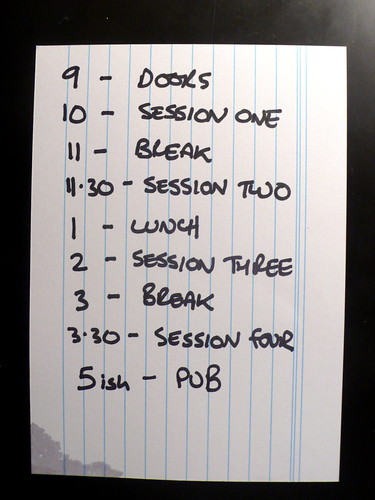 9 - DOORS
10 - SESSION ONE
11 - BREAK
11.30 - SESSION TWO
1 - LUNCH
2 - SESSION THREE
3 - BREAK
3.30 - SESSION FOUR
5ish - PUB